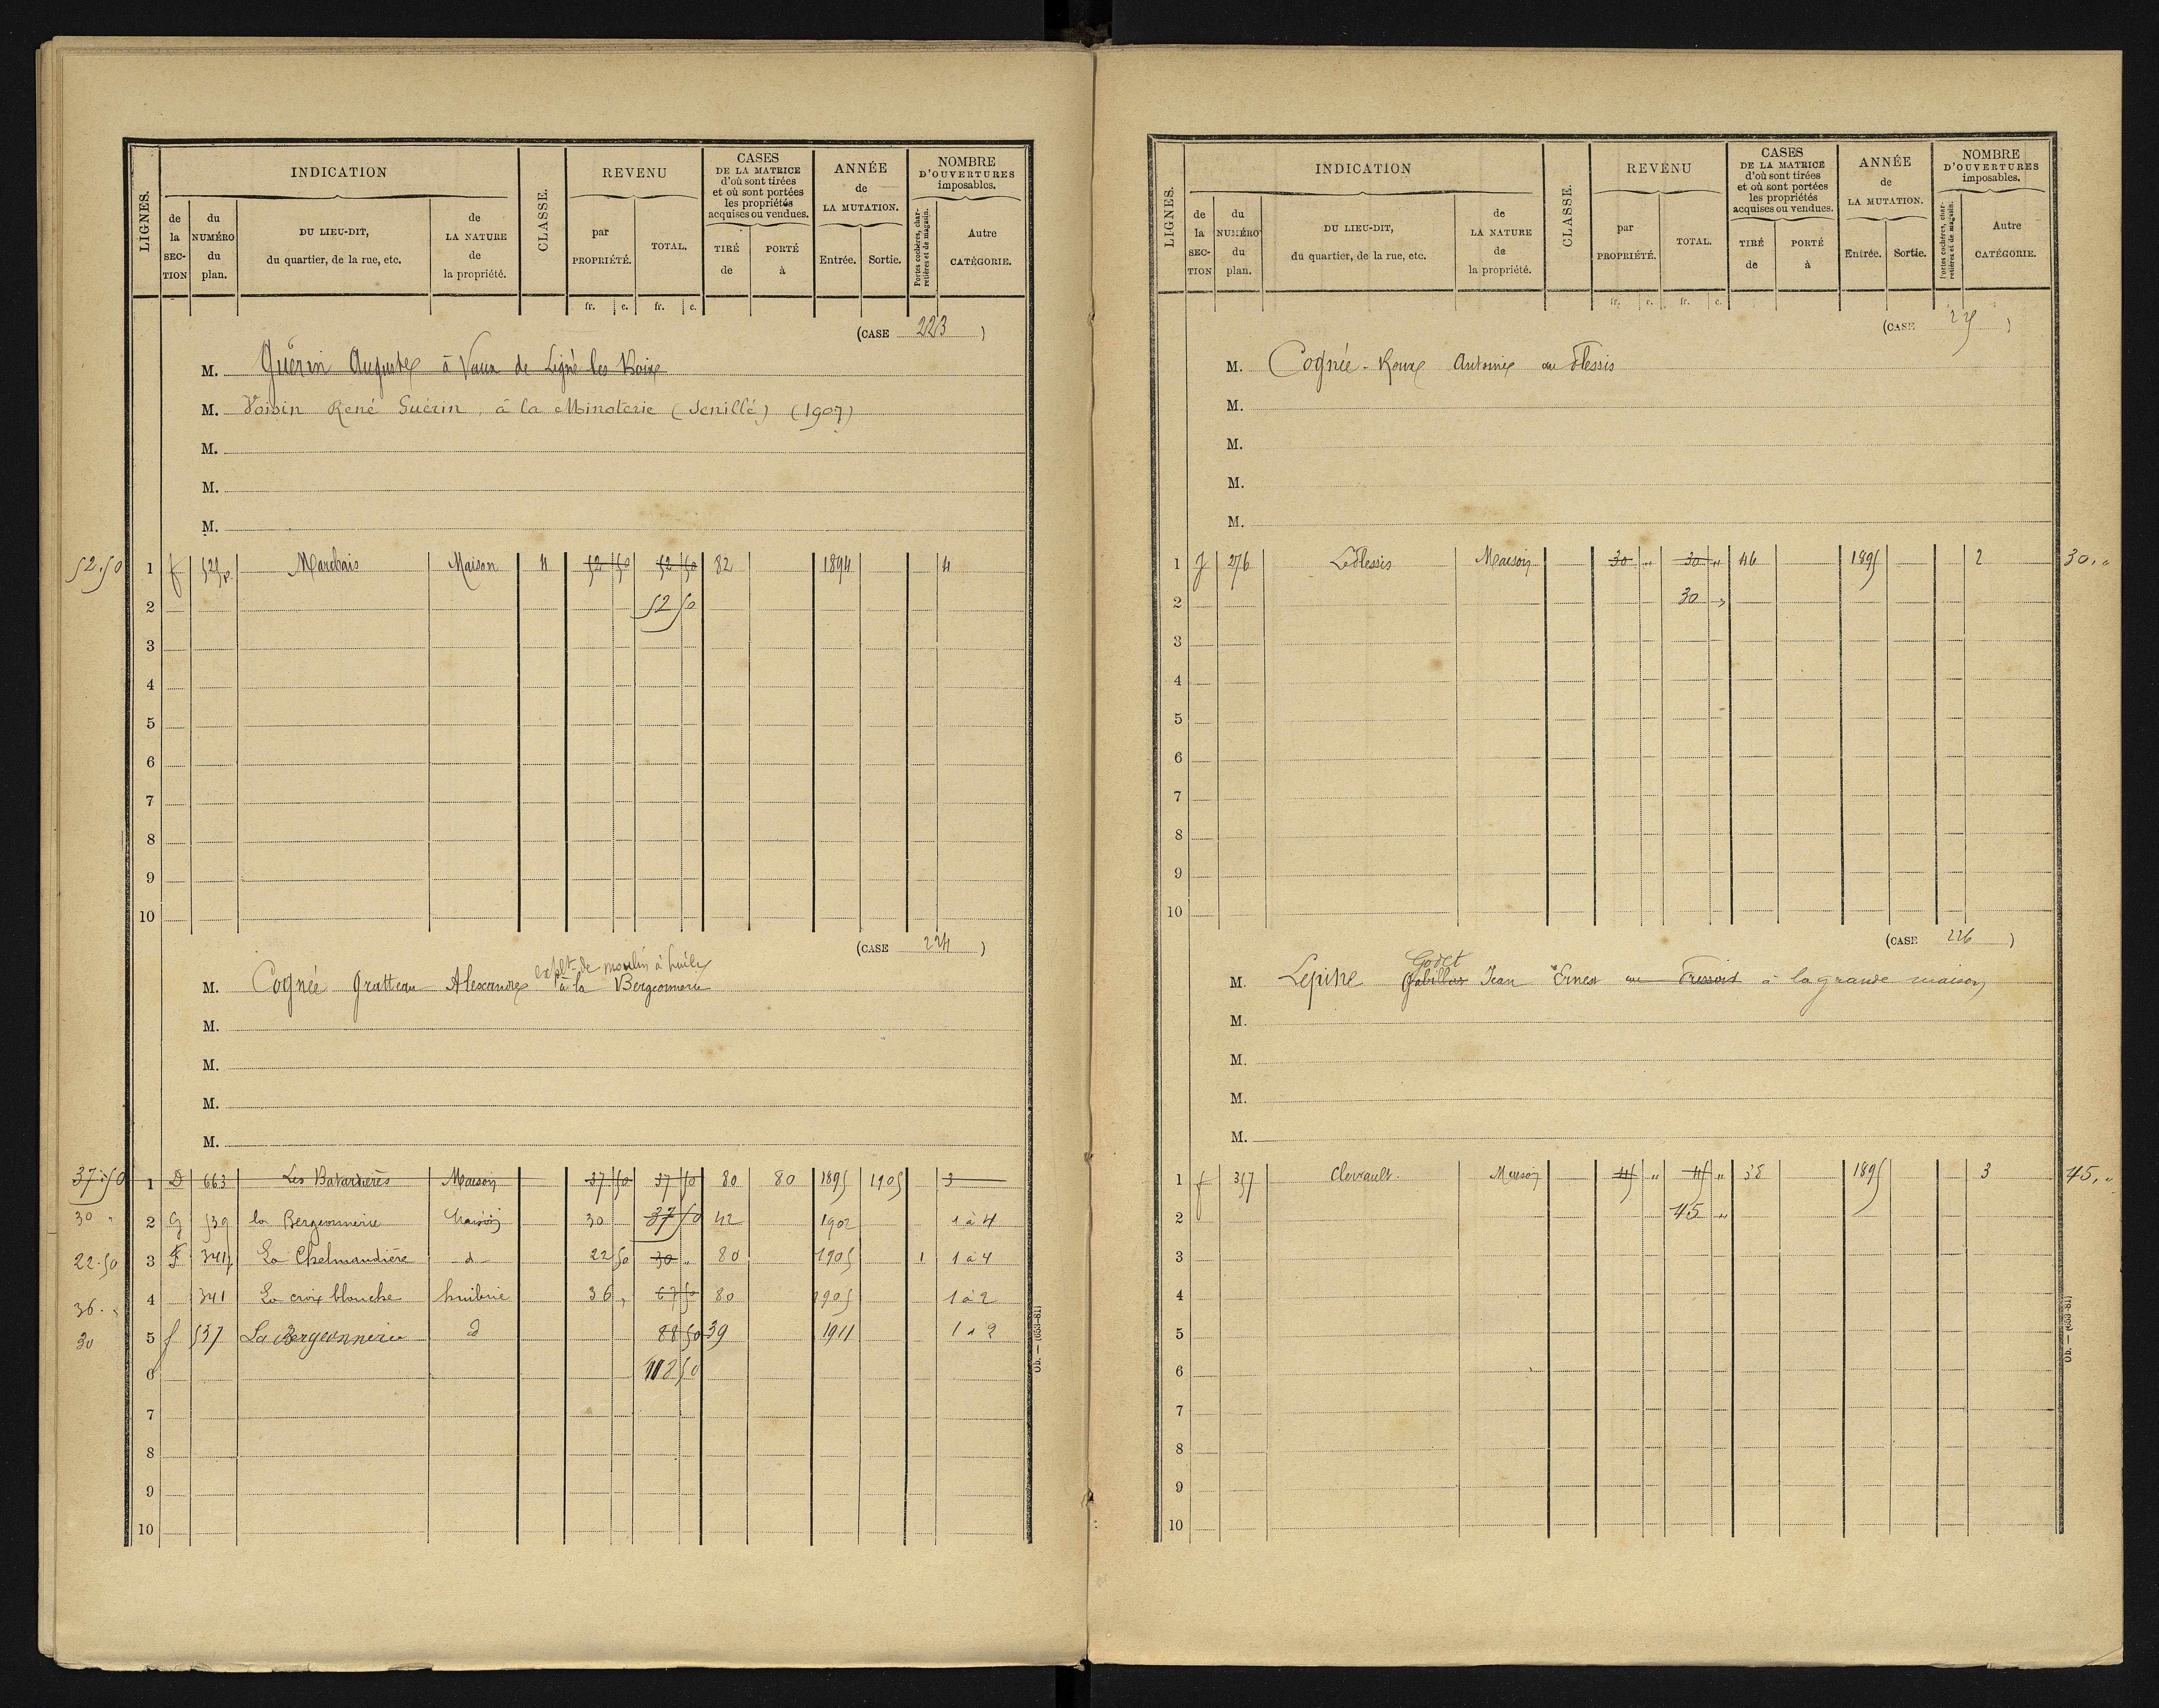 LIGNES. INDICATION CLASSE. REVENU CASES DE LA MATRICE d'où sont tirées et où sont portées les propriétés acquises ou vendues. ANNÉE de LA MUTATION. NOMBRE D'OUVERTURES imposables.
de la SECTION du NUMÉRO du plan. DU LIEU-DIT, du quartier, de la rue, etc. de LA NATURE de la propriété. par PROPRIÉTÉ. TOTAL. TIRÉ de PORTÉ à Entrée. Sortie. Portes cochères, charretières et de magasin. Autre CATÉGORIE.
fr. c. fr. c.
(CASE 223 )
M. Guérin Auguste à Vaux de
M. Voisin René Guérin, à la Minoterie (Senillé) (1907)
M.
M.
M.
52.50 1 f 525p Marchais Maison 4 52 50 52 50 82 1894 4
2 52 50
3
4
5
6
7
8
9
10
(CASE 224 )
explt de moulin à huile
M. Cognée Gratteau Alexandre à la Bergeonnerie
M.
M.
M.
M.
37.50 1 D 663 Les Batardières Maison 37 50 37 50 80 80 1895 1905 3
30 " 2 G 539 la Bergeonnerie Maison 30 37 50 42 1902 1 à 4
22.50 3 F 341p La Chelmandière d 22 50 30 " 80 1905 1 1 à 4
36. " 4 341 La croix blanche huilerie 36 " 67 50 80 1905 1 à 2
30 5 f 537 La Bergeonnerie d 88 50 39 1911 1 à 2
6 118 50
7
8
9
10
Ob. — (653-81)
LIGNES. INDICATION CLASSE. REVENU CASES DE LA MATRICE d'où sont tirées et où sont portées les propriétés acquises ou vendues. ANNÉE de LA MUTATION. NOMBRE D'OUVERTURES imposables.
de la SECTION du NUMÉRO du plan. DU LIEU-DIT, du quartier, de la rue, etc. de LA NATURE de la propriété. par PROPRIÉTÉ. TOTAL. TIRÉ de PORTÉ à Entrée. Sortie. Portes cochères, charretières et de magasin. Autre CATÉGORIE.
fr. c. fr. c.
(CASE 225 )
M. Cognée-Roux Antoine au Plessis
M.
M.
M.
M.
1 J 276 Le Plessis Maison 30 " 30 " 46 1895 2 30. "
2 30 "
3
4
5
6
7
8
9
10
(CASE 226 )
Godet
M. Lepine Jean Ernest au à la grande maison
M.
M.
M.
M.
1 f 357 Clervault. Maison 45 " 45 " 58 1895 3 45. "
2 45 "
3
4
5
6
7
8
9
10
Ob. — (653-81)